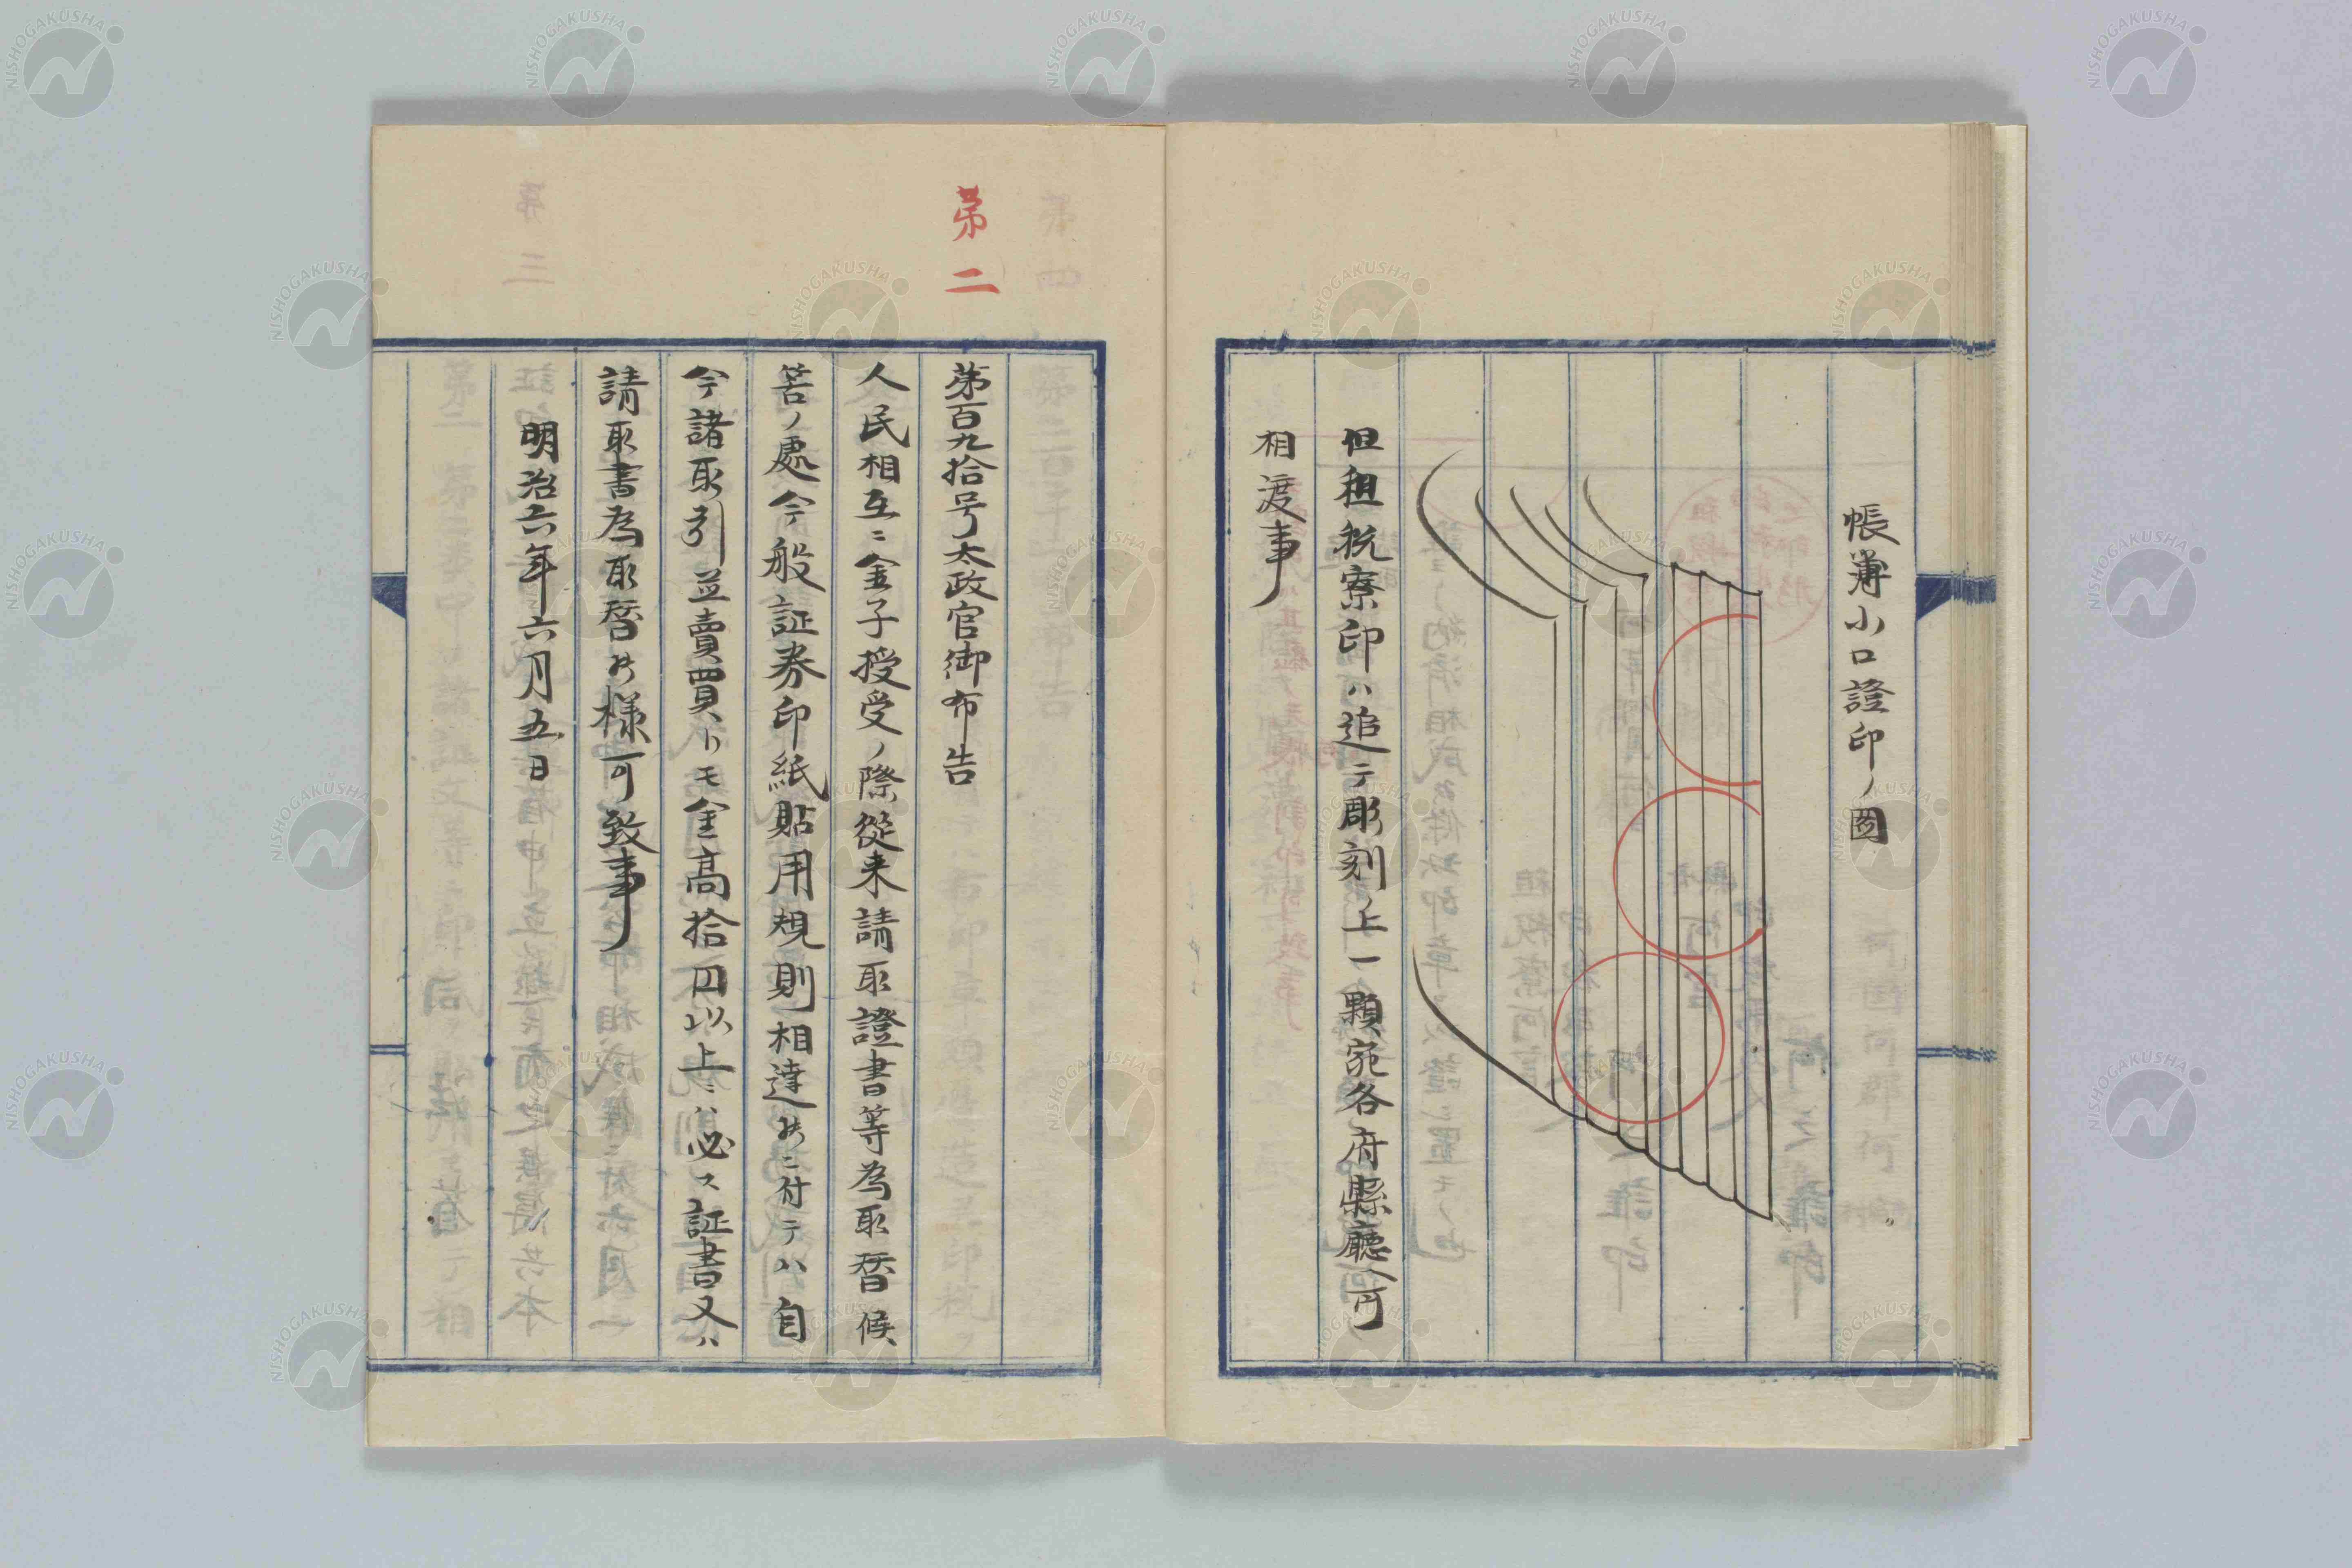 帳簿小口證印ノ圖
但租税寮印ハ追テ彫刻ノ上一顆宛各府縣廳ヘ可
相渡事
第二
第百九拾号太政官御布告
人民相互ニ金子授受ノ際從来請取證書等為取替候
筈ノ處今般証券印紙貼用規則相達候ニ付テハ自
今諸取引並賣買トモ金高拾円以上ニハ必ス証書又ハ
請取書為取替候様可致事
明治六年六月五日
NISHOGAKUSHA